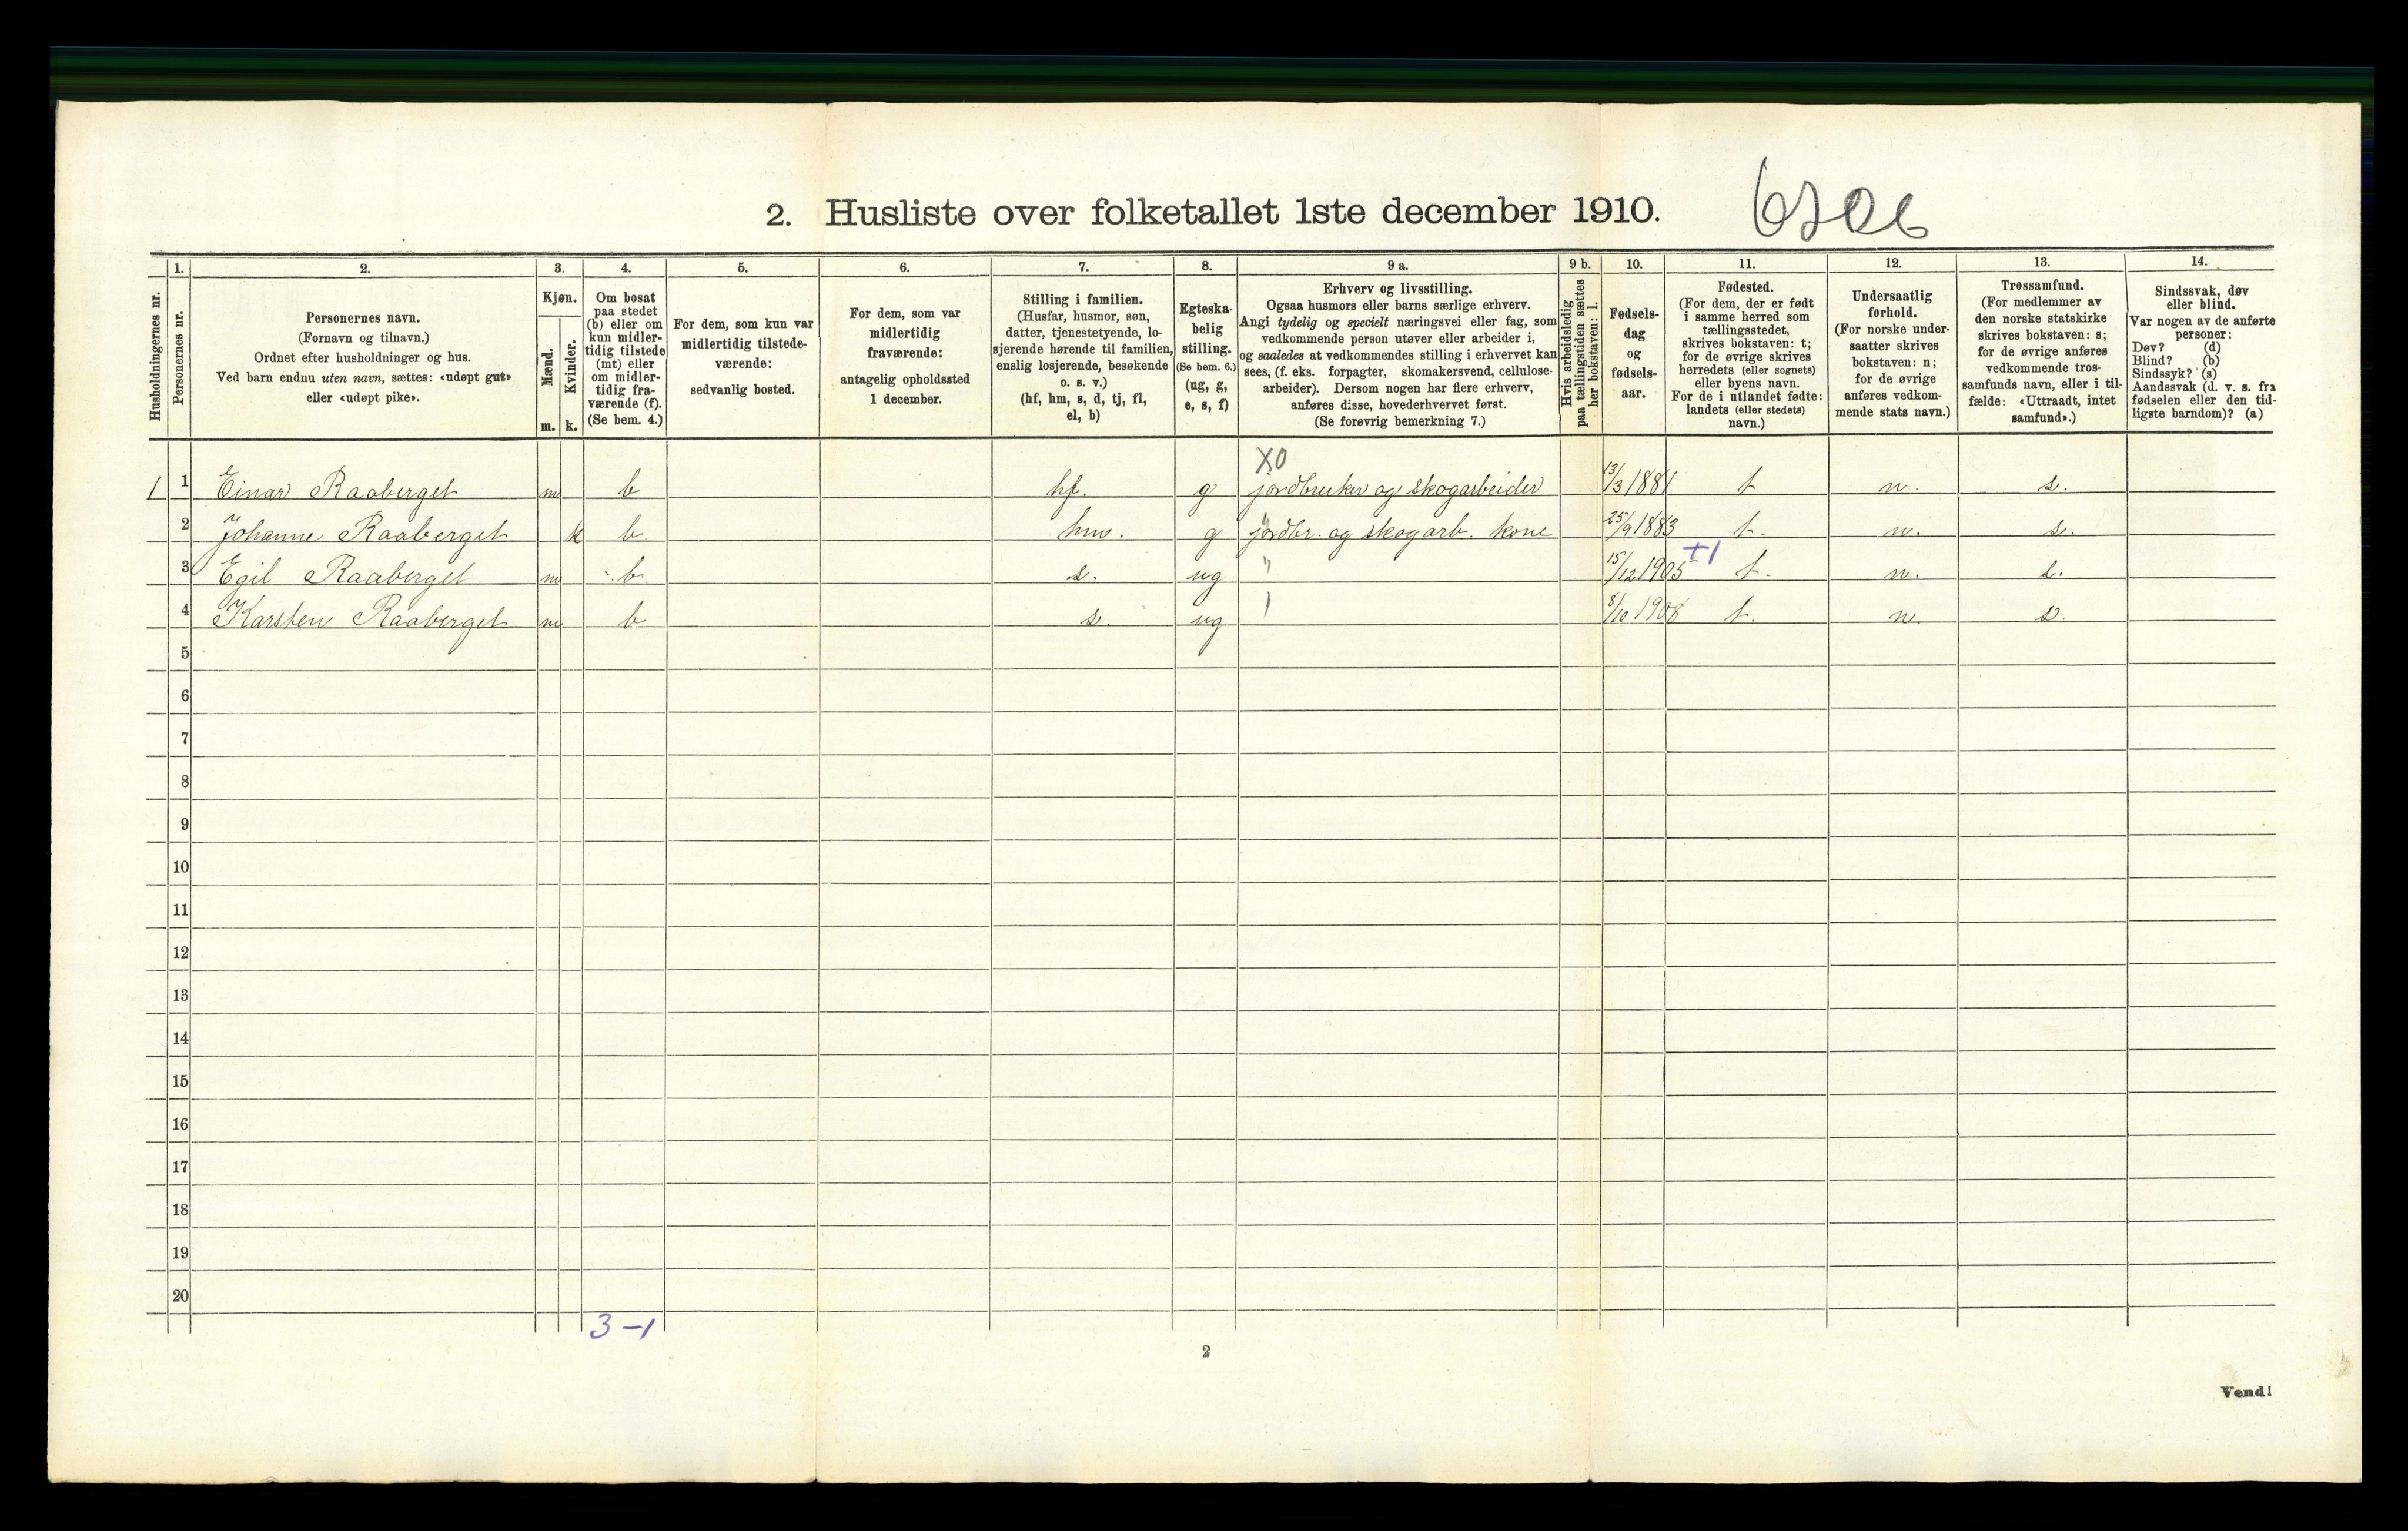 2. Husliste over folketallet 1ste december 1910.
Husholdningernes nr.
1.
Personernes nr.
2.
Personernes navn.
(Fornavn og tilnavn.)
Ordnet efter husholdninger og hus.
Ved barn endnu uten navn, sættes: «udøpt gut»
eller «udøpt pike».
3.
Kjøn.
Mænd.
Kvinder.
m. k.
4.
Om bosat
paa stedet
(b) eller om
kun midler-
tidig tilstede
(mt) eller
om midler-
tidig fra-
værende (f).
(Se bem. 4.)
5.
For dem, som kun var
midlertidig tilstede-
værende:
sedvanlig bosted.
6.
For dem, som var
midlertidig
fraværende:
antagelig opholdssted
1 december.
7.
Stilling i familien.
(Husfar, husmor, søn,
datter, tjenestetyende, lo-
sjerende hørende til familien,
enslig losjerende, besøkende
o. s. v.)
(hf, hm, s, d, tj, fl,
el, b)
8.
Egteska-
belig
stilling.
(Se bem. 6.)
(ug, g,
e, s, f)
9 a.
Erhverv og livsstilling.
Ogsaa husmors eller barns særlige erhverv.
Angi tydelig og specielt næringsvei eller fag, som
vedkommende person utøver eller arbeider i,
og saaledes at vedkommendes stilling i erhvervet kan
sees, (f. eks. forpagter, skomakersvend, cellulose-
arbeider). Dersom nogen har flere erhverv,
anføres disse, hovederhvervet først.
(Se forøvrig bemerkning 7.)
9 b.
Hvis arbeidsledig
paa tællingstiden sættes
her bokstaven: l.
10.
Fødsels-
dag
og
fødsels-
aar.
11.
Fødested.
(For dem, der er født
i samme herred som
tællingsstedet,
skrives bokstaven: t;
for de øvrige skrives
herredets (eller sognets)
eller byens navn.
For de i utlandet fødte:
landets (eller stedets)
navn.)
12.
Undersaatlig
forhold.
(For norske under-
saatter skrives
bokstaven: n;
for de øvrige
anføres vedkom-
mende stats navn.)
13.
Trossamfund.
(For medlemmer av
den norske statskirke
skrives bokstaven: s;
for de øvrige anføres
vedkommende tros-
samfunds navn, eller i til-
fælde: «Uttraadt, intet
samfund».)
14.
Sindssvak, døv
eller blind.
Var nogen av de anførte
personer:
Døv? (d)
Blind? (b)
Sindssyk? (s)
Aandssvak (d. v. s. fra
fødselen eller den tid-
ligste barndom)? (a)
XO
1 1 Einar Raaberget m b hf. g jordbruker og skogarbeider 13/3 1881 t n. s.
2 Johanne Raaberget k b hm. g jordbr. og skogarb. kone 25/9 1883 t. n. s.
3 Egil Raaberget m b s. ug " 15/12 1905 +1 t. n. s.
4 Karsten Raaberget m b s. ug 8/10 1908 t. n. s.
5
6
7
8
9
10
11
12
13
14
15
16
17
18
19
20
3-1
2
Vend!